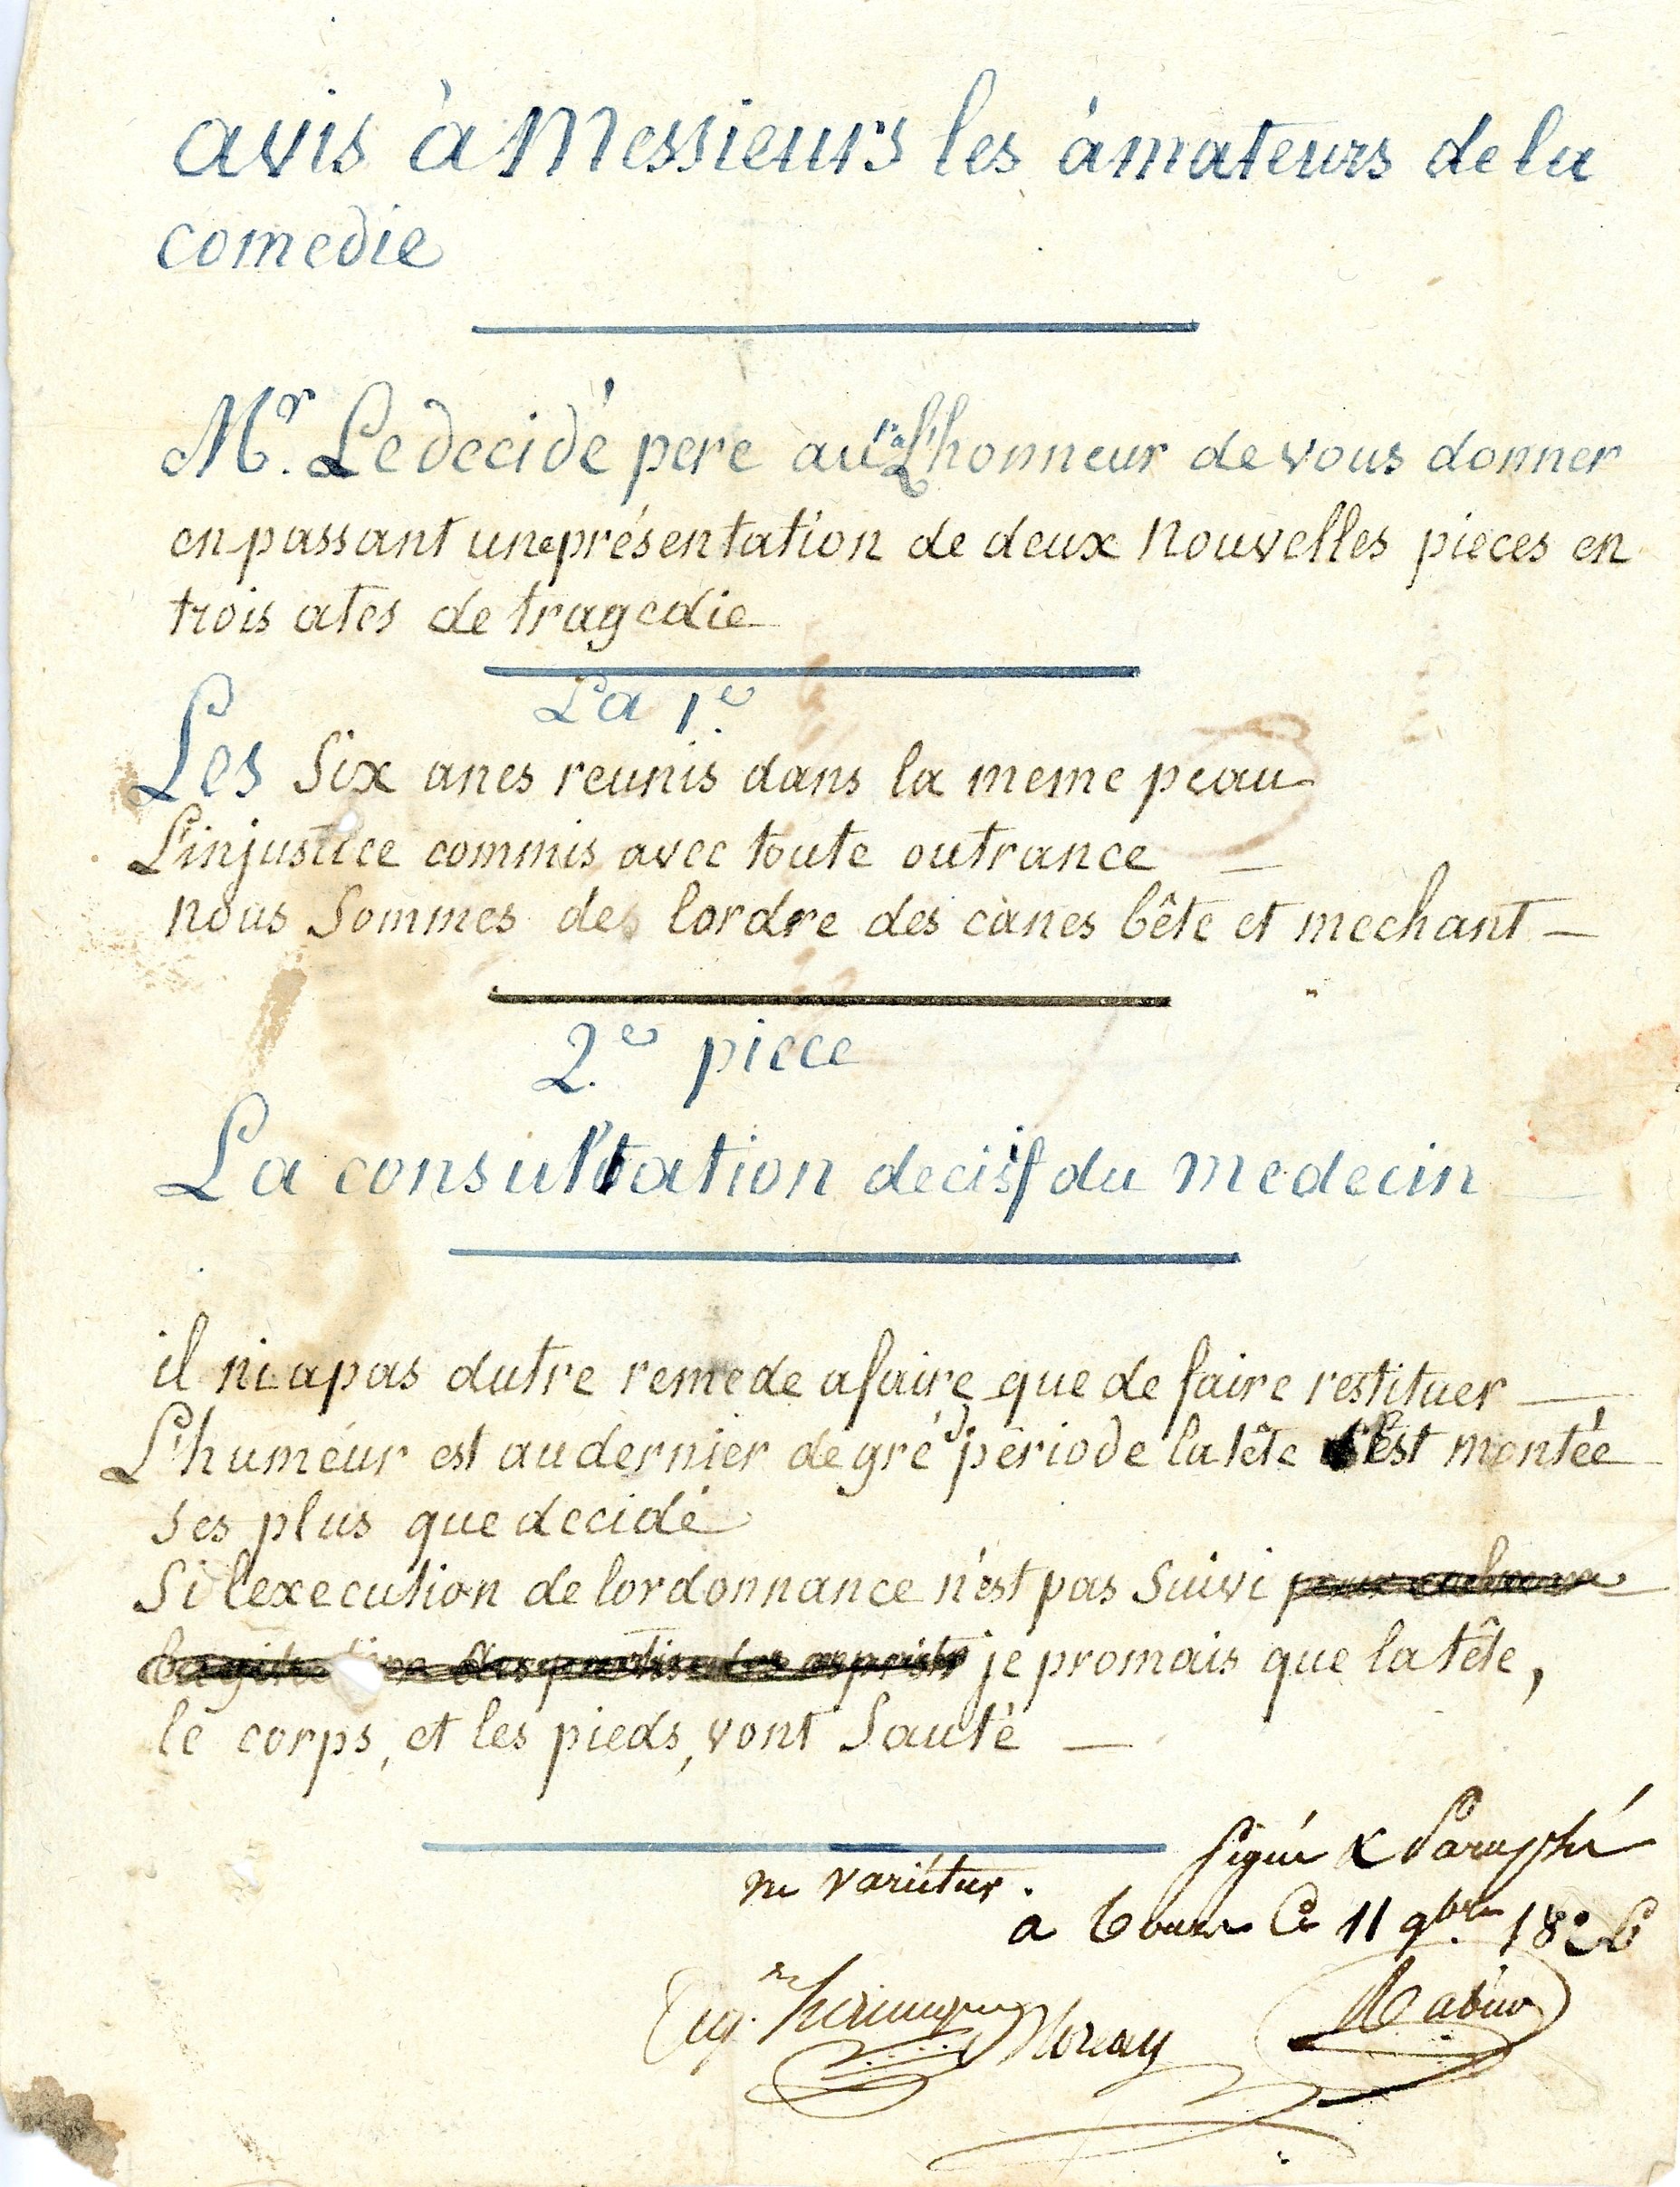 avis à Messieurs les àmateurs de la
comedie
Mr. Le decidé pere aura L'honneur de vous donner
en passant une présentation de deux nouvelles pieces en
trois ates de tragedie
La 1e.
Les Six anes reunis dans la meme peau
L'injustice commis avec toute outrance —
nous Sommes des lordre des cànes bête et mechant —
2.e piece
La consultation decisif du medecin
il ni a pas dutre remede a faire que de faire restituer —
L'huméur est au dernier degré periode la tête est montée
ses plus que decidé
Si l'execution de lordonnance n'est pas Suivi
je promais que la tête,
le corps, et les pieds, vont Sauté —
Signé & Paraphé
ne variétur.
a Tours Ce 11 9bre. 1826
Moreau